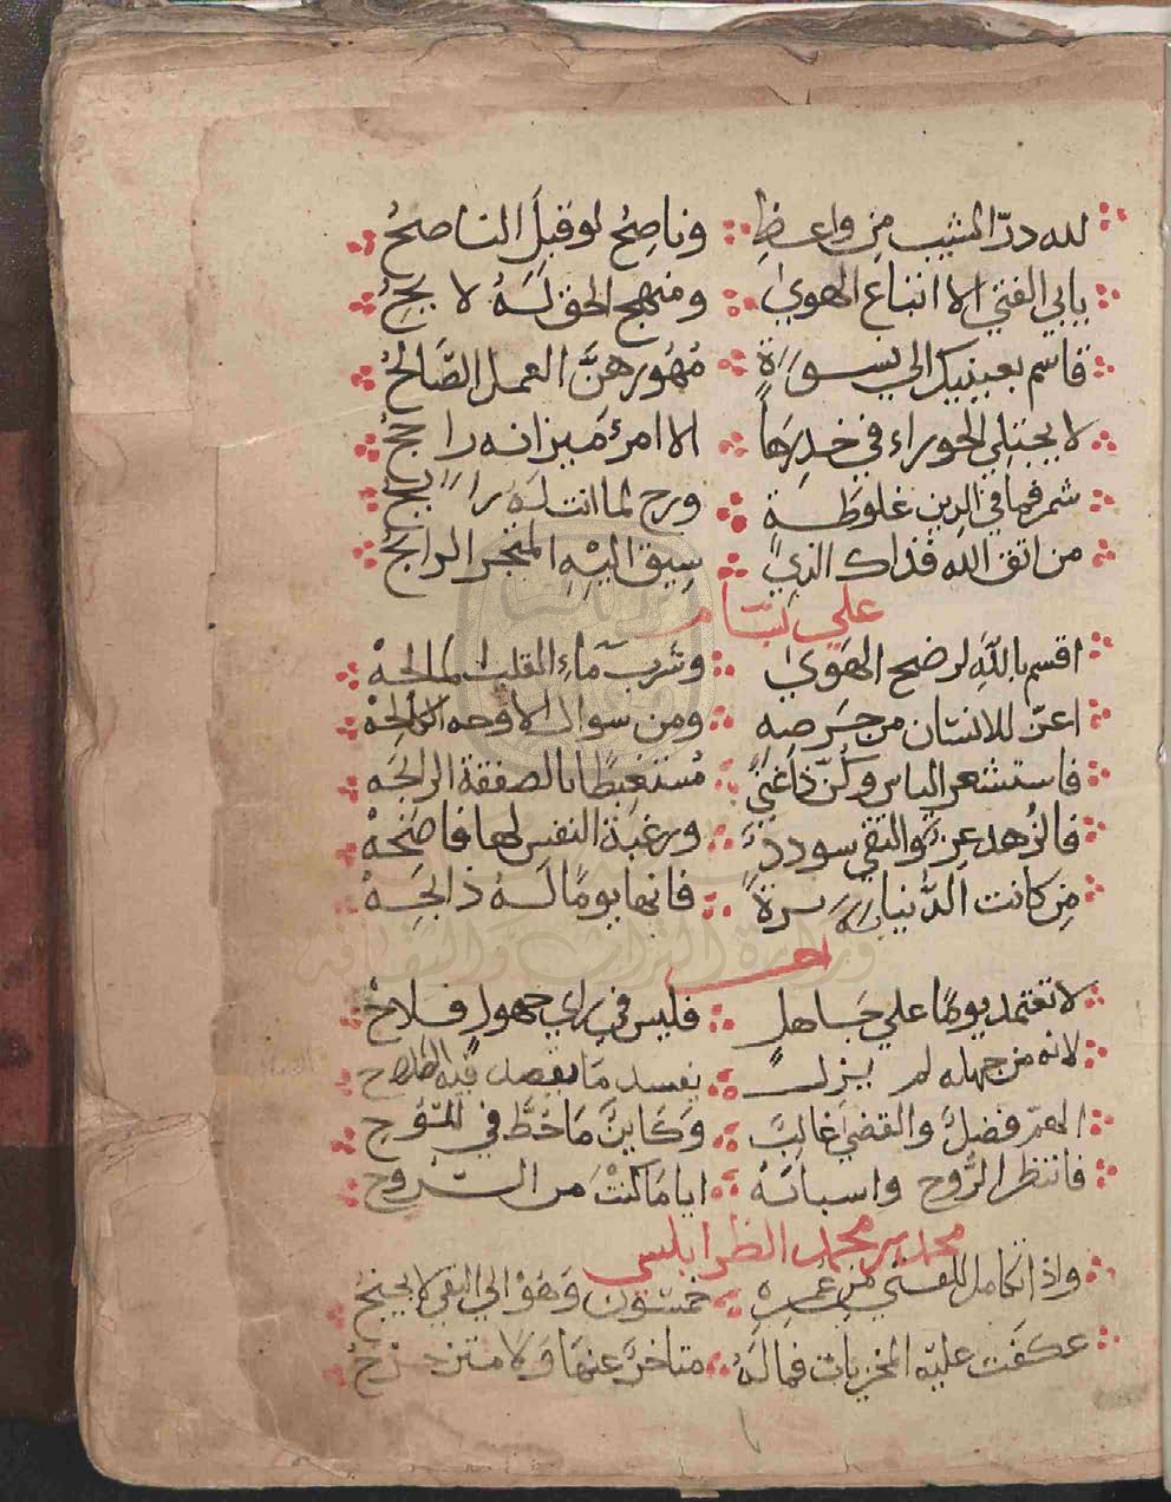 لله درّ المشيب من واعظِ وناصحُ لو قبلَ الناصحُ
يابي الفتي الا اتباع الهوي ومنهج الحق لَهُ لا يحُ
فاسم بعينيك الي نسوَةٍ مُهُورهنَّ العمل الصّالحُ
لا يجتلي الحوراء في خدرِهَا الا امرئ ميزانه راجحُ
شمر فما في الدين غلوطة ورح لما انت لَهُ رايحُ
من اتق الله فذاك الذي سِيق اليْهِ المتجر الرابحُ
علي بسام
اقسم باللَّهِ لرضح الهَوي وشرب مَاءِ القلب المالحهْ
اعزّ للانسان من حَرصِهِ ومن سوال الاوجه الكالحهْ
فاستشعر الياس وكنّ ذا غنيً مُستغبطًا بالصفقة الرابحَه
فالزُهد عِزٌ والتقي سوددٌ ورغبَة النفس لها فاضحهْ
من كانت الدُّنيا بِهِ برةً فانها يومًا لَهُ ذابحَهْ
اخر
لا تعتمد يومًا علي جَاهلٍ فليس في راي جهولٍ فلاحْ
لانه من جهله لم يزل يفسد مَا يقصد فيه الصلاح
الهمّ فضلٌ والقضي غالبٌ وَكاينٌ مَا خُطَّ في اللّوْحِ
فانتظر الرَّوح واسبابَهُ ايا مَا كنْتَ من الرُّوحِ
محمد بن محمد الطرابلسي
واذا تكامل للفتي من عُمرِهِ خمسُون وَهُوْ الي التقي لا يجنحُ
عكفَت عليْه المخزيات فمالَهُ متاخرٌ عنهَا وَلا متزحزحُ